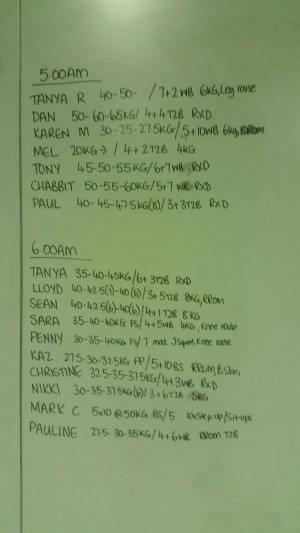 5:00AM
TANYA R 40-50- / 7+2 WB 6KG, Leg raise
DAN 50-60-65KG / 4+4 T2B RXD
KAREN M 30-25-27.5KG / 5+10WB 6kg, RROM
MEL 20KG→ / 4+2 T2B 4KG
TONY 45-50-55KG / 6+7 WB RXD
CHABBIT 50-55-60KG / 5+7 WB RXD
PAUL 40-45-47.5KG(3) / 3+3T2B RXD
6:00AM
TANYA 35-40-45KG / 6+3T2B RXD
LLOYD 40-42.5(7)-40(6) / 3+5T2B 8KG, RROM
SEAN 40-42.5(6)-40(6) / 4+1 T2B 8KG
SARA 35-40-40KG FS / 4+5WB 4KG, Knee raise
PENNY 30-35-40KG FS / 7 mod. JSquat, Knee raise
KAZ 27.5-30-32.5KG PP / 5+10BS
CHRISTINE 32.5-35-37.5KG / 4+3WB RXD
NIKKI 30-35-37.5KG(6) / 3+6T2B 5KG
MARK C 5x10 @ 50KG BS / 5 10xStep-up/Sit-ups
PAULINE 27.5-30-35KG / 4+6WB RROM T2B